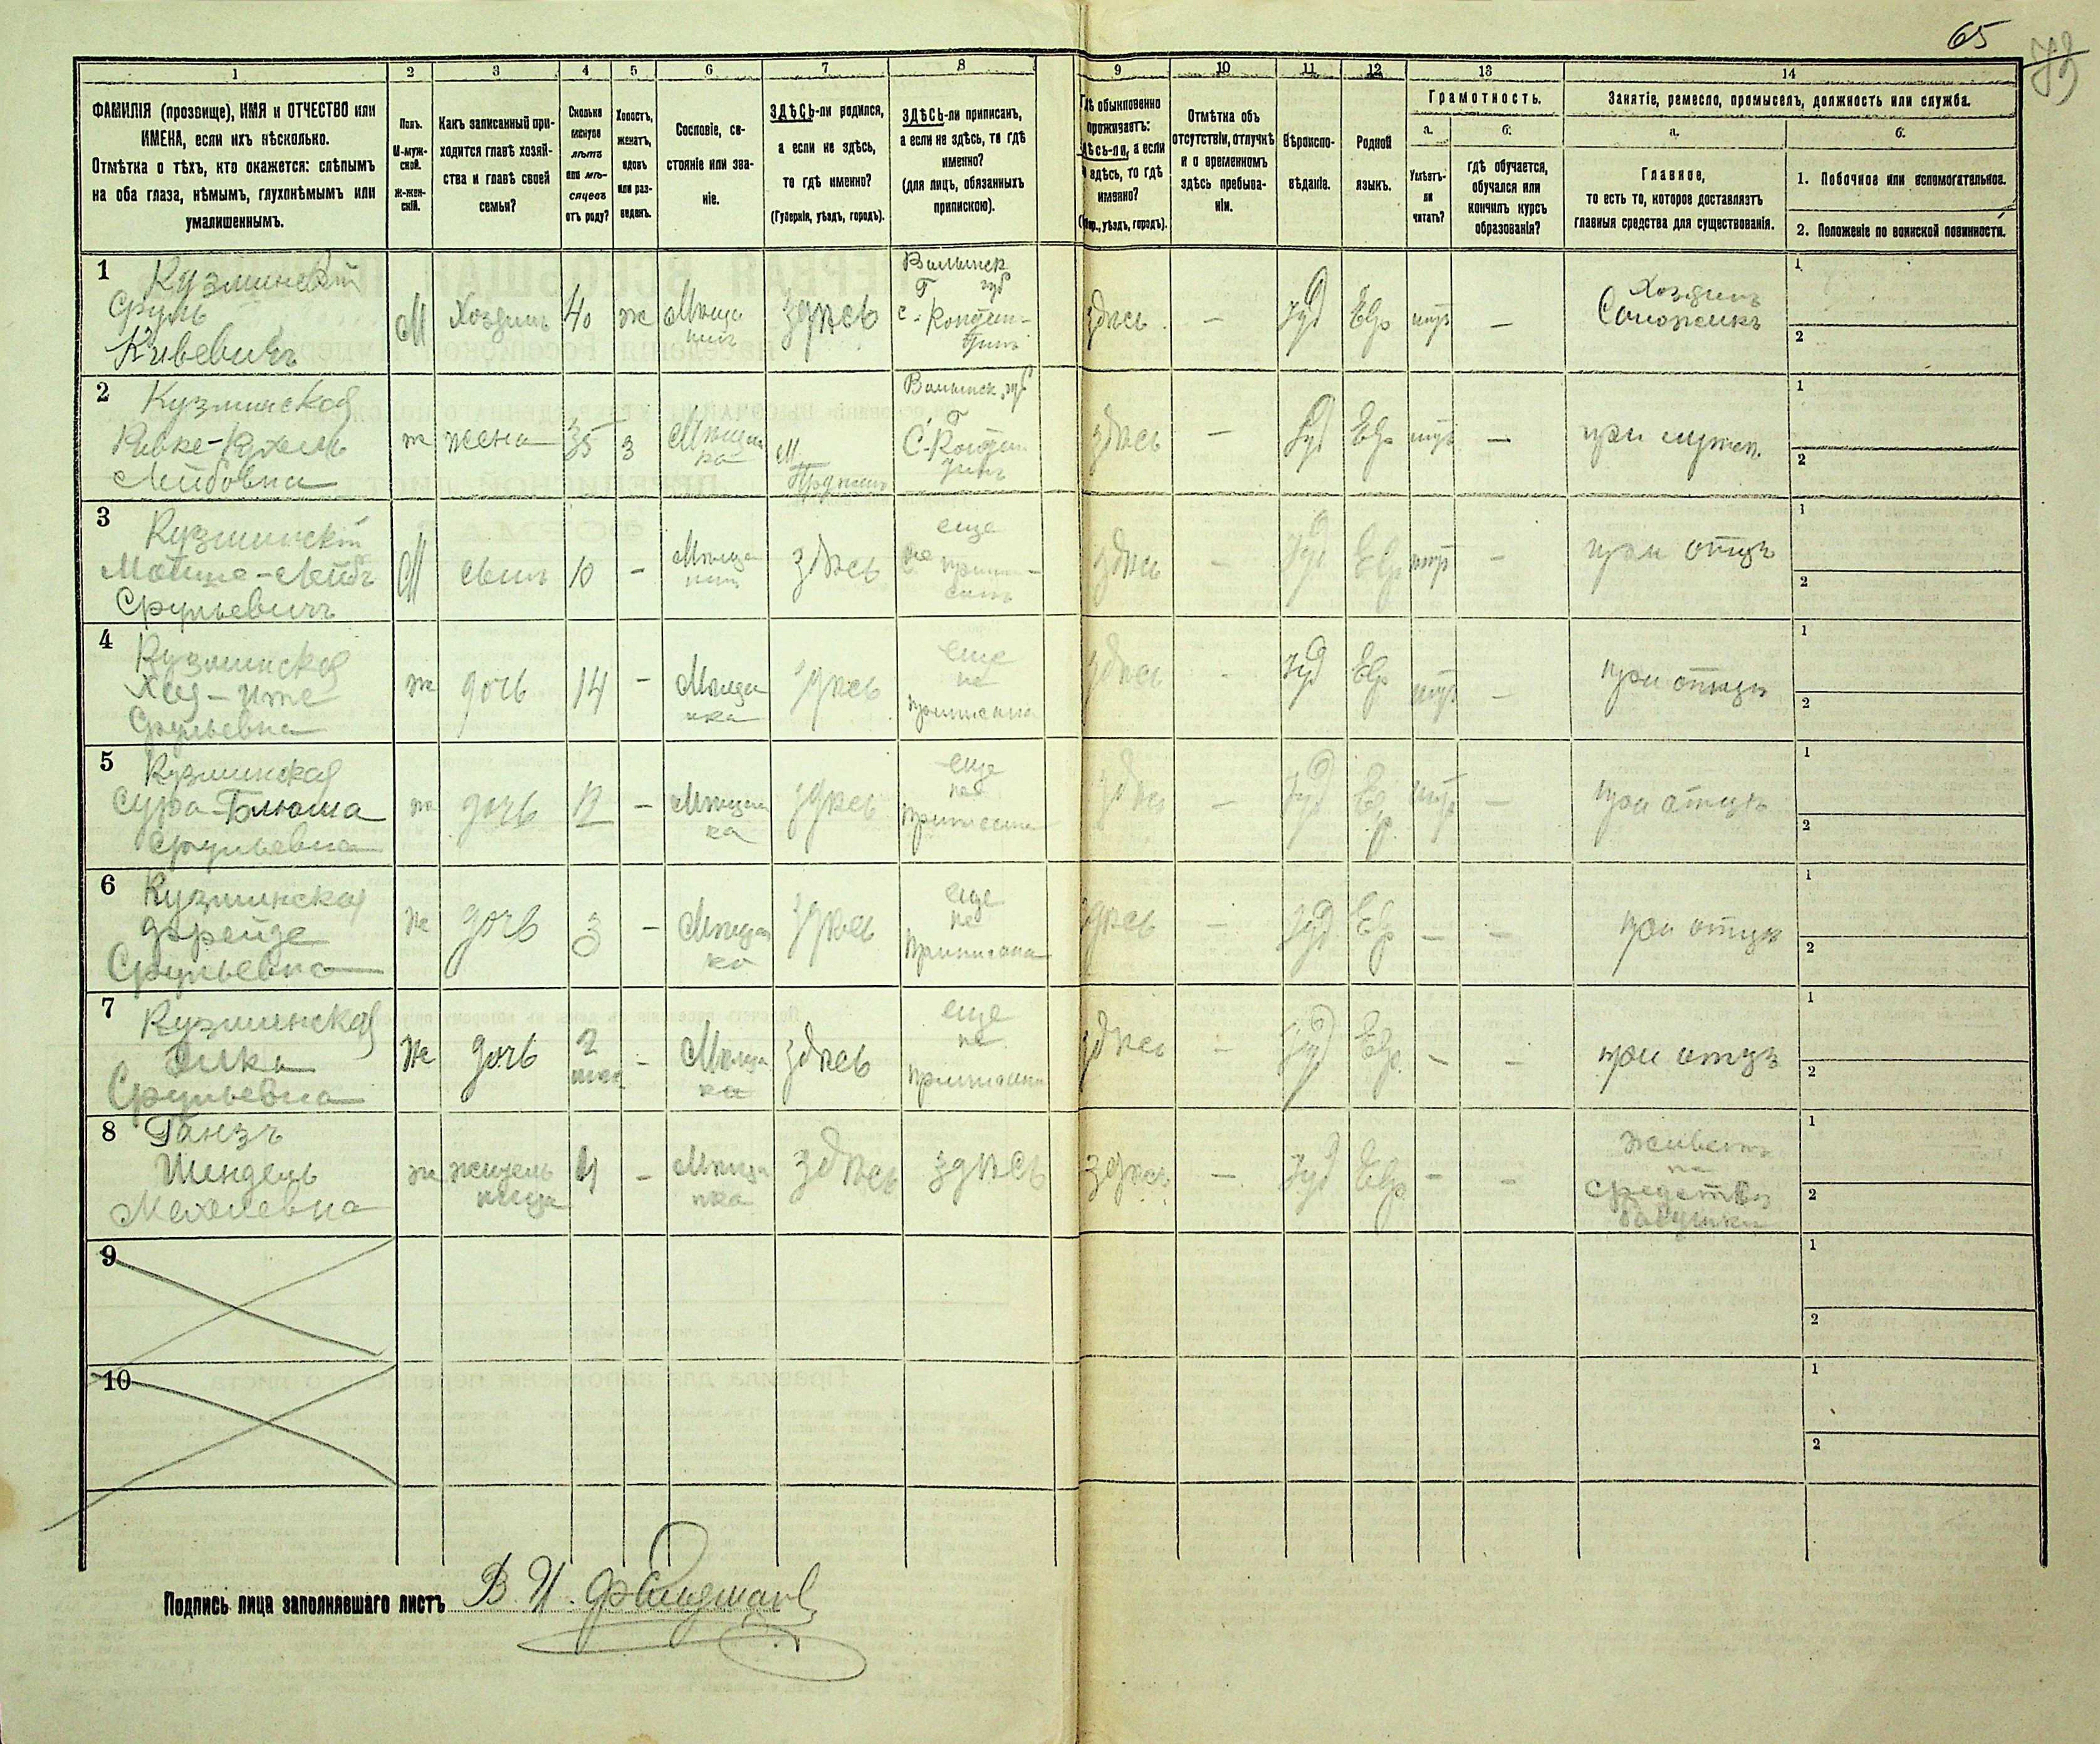 65
73
1
2
3
4
5
6
7
8
9
10
11
12
13
14
ФАМИЛІЯ (прозвище), ИМЯ и ОТЧЕСТВО или
ИМЕНА, если ихъ нѣсколько.
Отмѣтка о тѣхъ, кто окажется: слѣпымъ
на оба глаза, нѣмымъ, глухонѣмымъ или
умалишеннымъ.
Полъ.
М-муж-
ской.
Ж-жен-
скій.
Какъ записанный при-
ходится главѣ хозяй-
ства и главѣ своей
семьи?
Сколько
минуло
лѣтъ
или мѣ-
сяцевъ
отъ роду?
Холостъ,
женатъ,
вдовъ
или раз-
веденъ.
Сословіе, со-
стояніе или зва-
ніе.
ЗДѢСЬ-ли родился,
а если не здѣсь,
то гдѣ именно?
(Губернія, уѣздъ, городъ).
ЗДѢСЬ-ли приписанъ,
а если не здѣсь, то гдѣ
именно?
(для лицъ, обязанныхъ
припискою).
Гдѣ обыкновенно
проживаетъ:
здѣсь-ли, а если
не здѣсь, то гдѣ
именно?
(Губ., уѣздъ, городъ).
Отмѣтка объ
отсутствіи, отлучкѣ
и о временномъ
здѣсь пребыва-
ніи.
Вѣроиспо-
вѣданіе.
Родной
языкъ.
Грамотность.
а.
б.
Умѣетъ-
ли
читать?
гдѣ обучается,
обучался или
кончилъ курсъ
образованія?
Занятіе, ремесло, промыселъ, должность или служба.
а.
б.
Главное,
то есть то, которое доставляетъ
главныя средства для существованія.
1. Побочное или вспомогательное.
2. Положеніе по воинской повинности.
1
Кузминскій
Сруль
Кивевичъ
М
Хозяинъ
40
ж
Мѣща
нинъ
здѣсь
Волынск
губ
Г
с-Констан-
тинъ
здѣсь
—
Іуд
Евр
—
Хозяинъ
Сапожникъ
1
2
2
Кузминская
Ривке-Рухель
Лейбовна
ж
жена
35
з
Мѣщан
ка
М.
Волынск. губ
Г
С-Констан
тинъ
здѣсь
—
Іуд
Евр
—
при мужѣ.
1
2
3
Кузминскій
Мотще-Лейбъ
Срульевичъ
М
сынъ
10
-
Мѣща
нинъ
здѣсь
еще
не припи-
санъ
здѣсь
-
Іуд
Евр
-
при отцѣ
1
2
4
Кузминская
Хая-
Срульевна
ж
дочь
14
-
Мѣща
нка
здѣсь
еще
не
приписана
здѣсь
-
Іуд
Евр
-
при отцѣ
1
2
5
Кузминская
Сура-Блюма
Срульевна
ж
дочь
12
-
Мѣщан
ка
здѣсь
еще
не
приписана
здѣсь
—
Іуд
Евр
—
при отцѣ
1
2
6
Кузминская
Фрейде
Срульевна
ж
дочь
3
-
Мѣщан
ка
здѣсь
еще
не
приписана
здѣсь
—
Іуд
Евр
—
—
при отцѣ
1
2
7
Кузминская
Элка
Срульевна
ж
дочь
2
мѣс
-
Мѣщан
ка
здѣсь
еще
не
приписана
здѣсь
—
Іуд
Евр.
-
-
при отцѣ
1
2
8
Ганзъ
Шендель
Мехелевна
ж
жителъ
ница
4
-
Мѣща
нка
здѣсь
здѣсь
здѣсь
—
Іуд
Евр
-
-
живетъ
на
средства
бабушки
1
2
9
1
2
10
1
2
Подпись лица заполнявшаго листъ